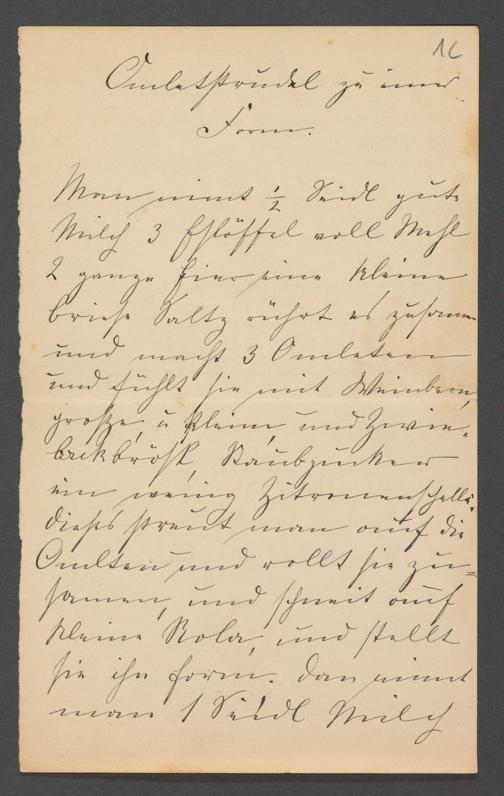 16
Omletstrudel zu einer
Form.
Man nimt ½ Seidl gute
Milch 3 Eßlöffel voll Mehl
2 ganze Eier eine kleine
briese Saltz rührt es zusamen
und macht 3 Omleten
und fühlt sie mit Weinbern,
große, u kleine, und Zwie-
backbrösl, Staubzucker
ein wenig Zitronenschelle.
dieses streut man auf die
Omlten und rollt sie zu=
samen, und schneit auf
kleine Rola, und stellt
sie ihn form. dan nimt
man 1 Seidl Milch